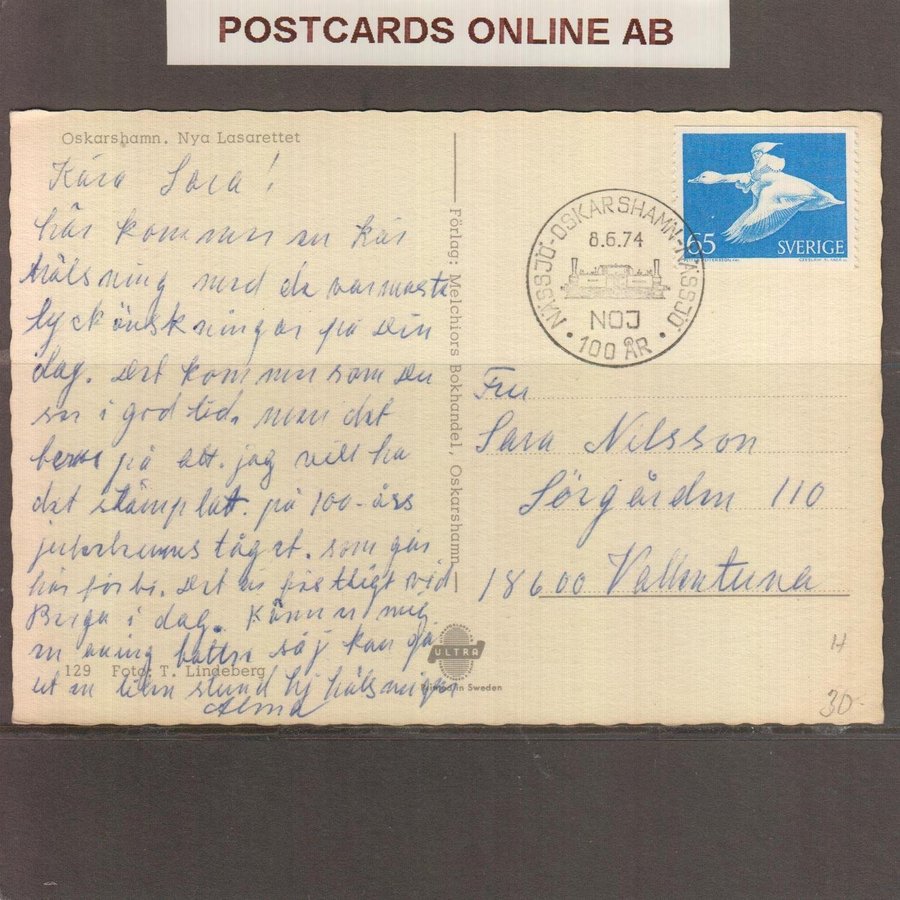 POSTCARDS ONLINE AB
Oskarshamn. Nya Lasarettet
Kära Sara!
här kommer en kär
hälsning med de varmaste
lyckönskningar på Din
dag. Det kommer som Du
ser i god tid. men det
beror på att. jag vill ha
det stämplat. på 100-års
tåget. som går
här förbi. Det är
i dag. Känner mig
en aning bättre så jag kan gå
ut en liten stund hälsningar
Alma
129 Foto: T. Lindeberg
Förlag: Melchiors Bokhandel, Oskarshamn
ULTRA
Printed in Sweden
NÄSSJÖ-OSKARSHAMN-NÄSSJÖ
8.6.74
NOJ
100 ÅR
65 SVERIGE
Fru
Sara Nilsson
Sörgården 110
18600 Vallentuna
H
30-